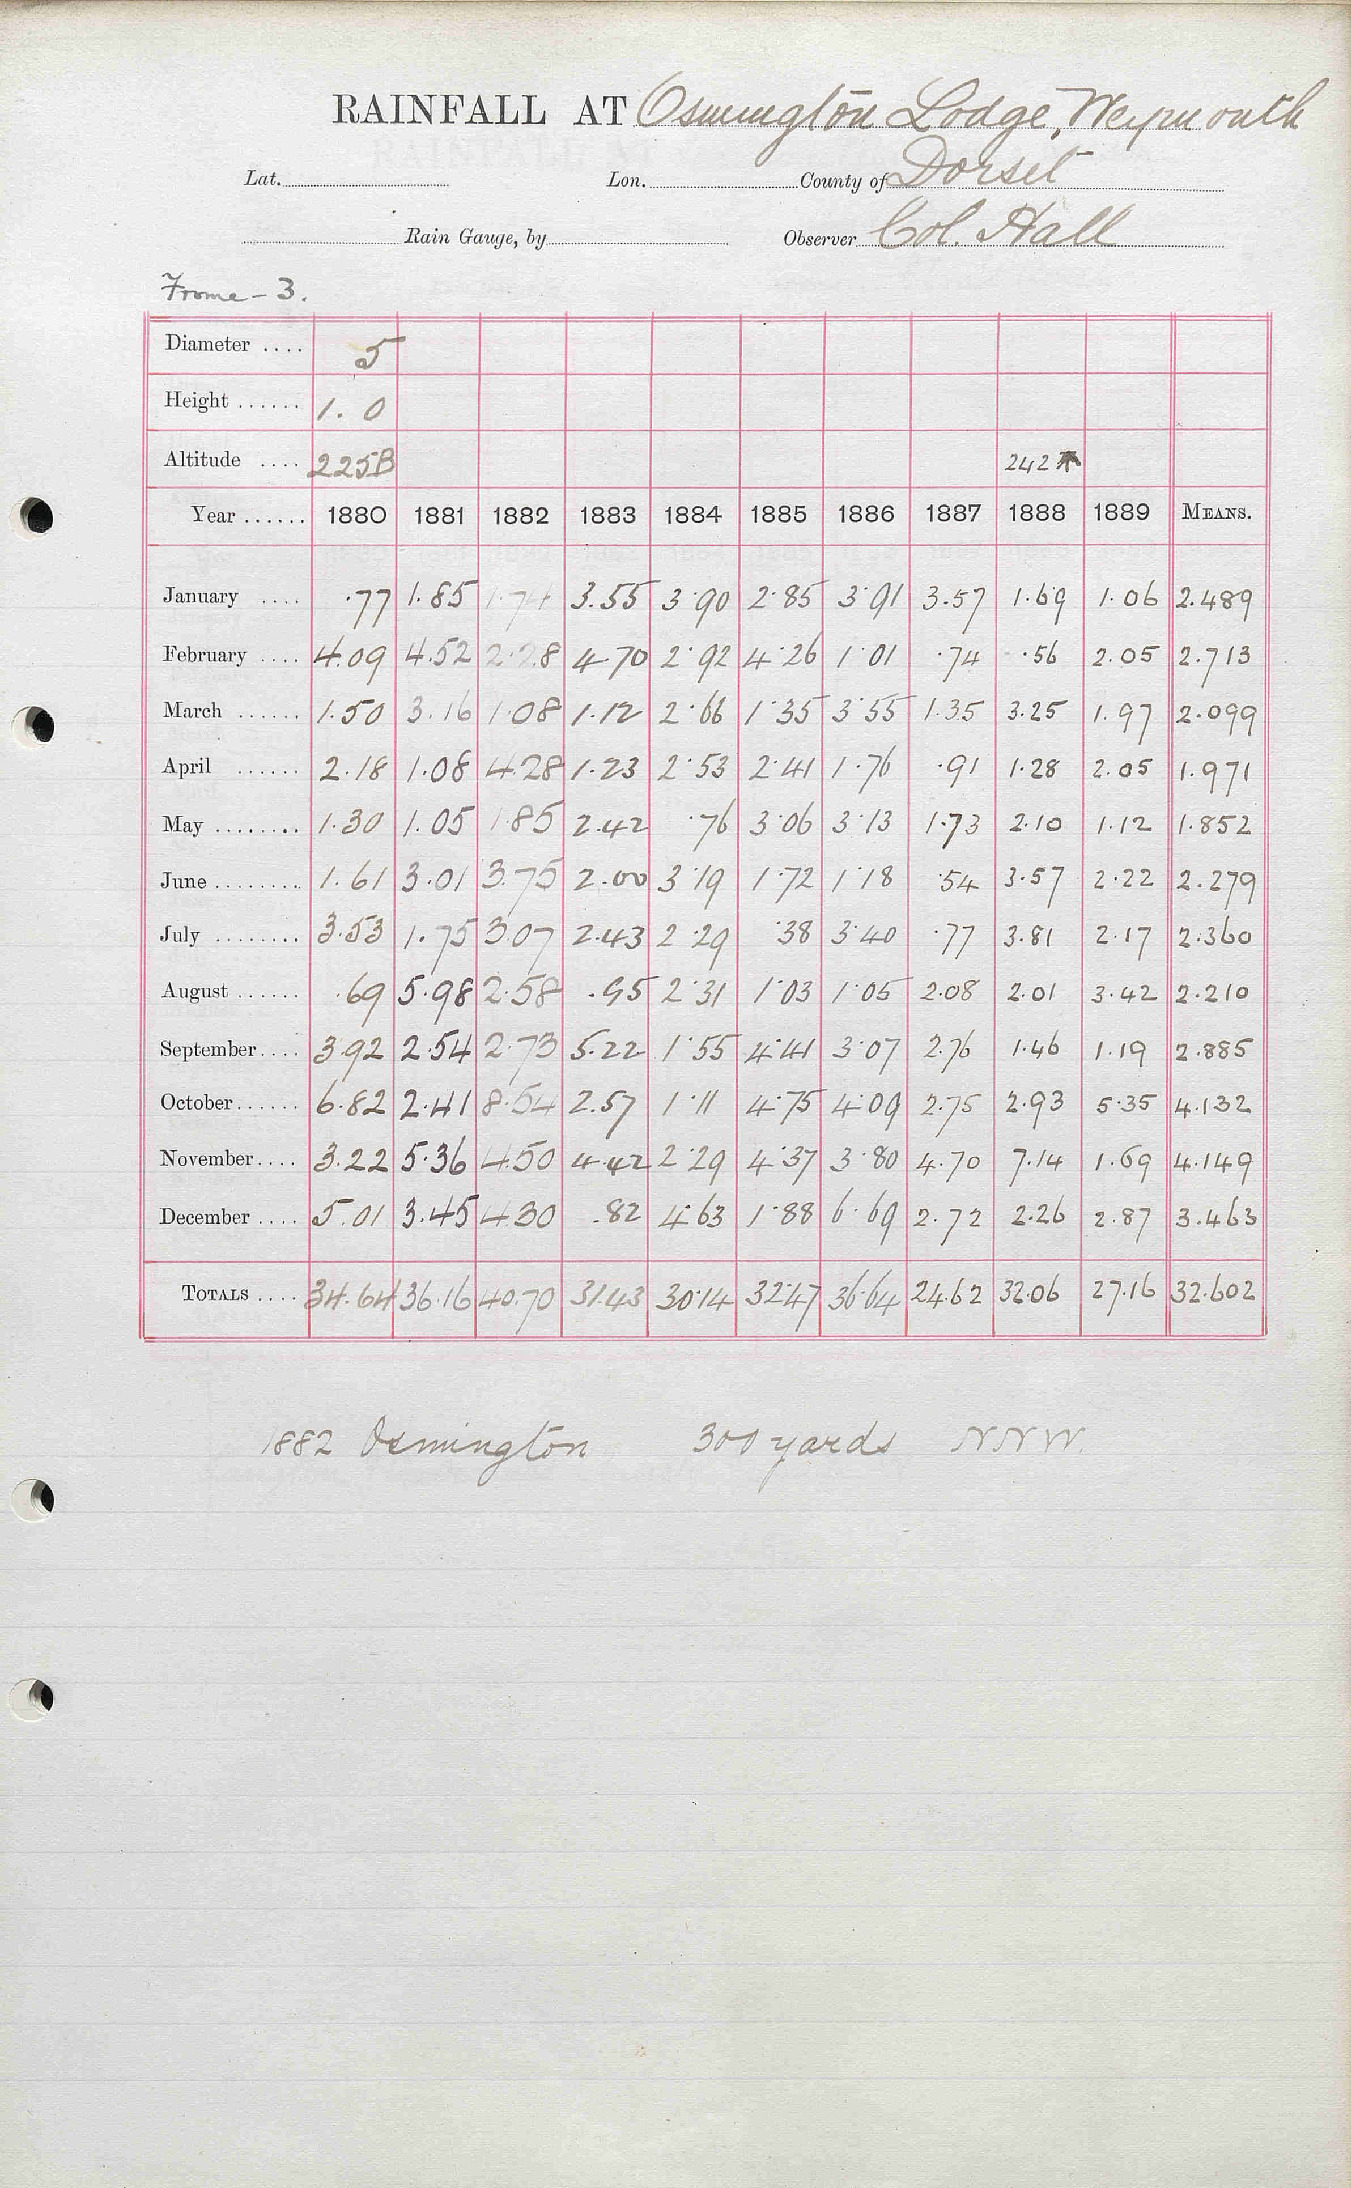 RAINFALL AT Osmington Lodge, Weymouth
Lat. Lon. County of Dorset
Rain Gauge, by Observer Col. Hall
Frome - 3.
Diameter .... 5
Height ...... 1. 0
Altitude .... 225B 242
Year ...... 1880 1881 1882 1883 1884 1885 1886 1887 1888 1889 MEANS.
January .... .77 1.85 1.74 3.55 3.90 2.85 3.91 3.57 1.69 1.06 2.489
February .... 4.09 4.52 2.28 4.70 2.92 4.26 1.01 .74 .56 2.05 2.713
March ...... 1.50 3.16 1.08 1.12 2.66 1.35 3.55 1.35 3.25 1.97 2.099
April ...... 2.18 1.08 4.28 1.23 2.53 2.41 1.76 .91 1.28 2.05 1.971
May ........ 1.30 1.05 1.85 2.42 .76 3.06 3.13 1.73 2.10 1.12 1.852
June ........ 1.61 3.01 3.75 2.00 3.19 1.72 1.18 .54 3.57 2.22 2.279
July ........ 3.53 1.75 3.07 2.43 2.29 .38 3.40 .77 3.81 2.17 2.360
August ...... .69 5.98 2.58 .95 2.31 1.03 1.05 2.08 2.01 3.42 2.210
September .... 3.92 2.54 2.73 5.22 1.55 4.41 3.07 2.76 1.46 1.19 2.885
October ...... 6.82 2.41 8.54 2.57 1.11 4.75 4.09 2.75 2.93 5.35 4.132
November .... 3.22 5.36 4.50 4.42 2.29 4.37 3.80 4.70 7.14 1.69 4.149
December .... 5.01 3.45 4.30 .82 4.63 1.88 6.69 2.72 2.26 2.87 3.463
TOTALS .... 34.64 36.16 40.70 31.43 30.14 32.47 36.64 24.62 32.06 27.16 32.602
1882 Osmington 300 yards NNW.